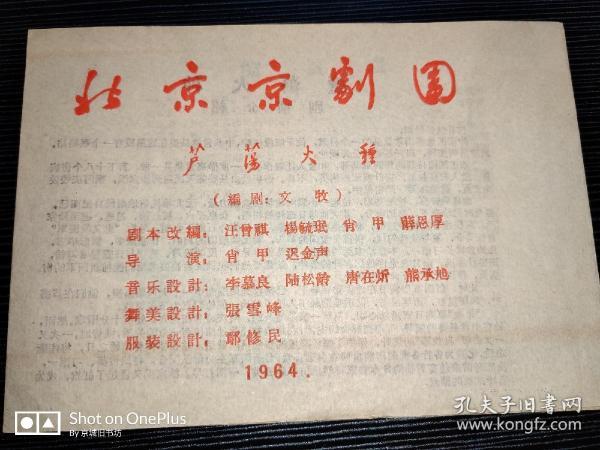 北京京剧团
芦荡火种
(编剧:文牧)
剧本改编: 汪曾祺 楊毓珉 肖甲 薛恩厚
导演: 肖甲 迟金声
音乐設計: 李慕良 陆松龄 唐在炘 熊承旭
舞美設計: 張雪峰
服装設計: 鄢修民
1964.
Shot on OnePlus
By 京城旧书坊
孔夫子旧书网
www.kongfz.com